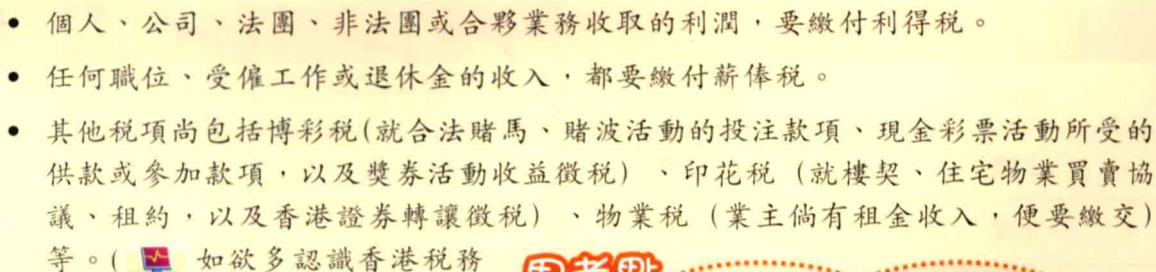 • 個人、公司、法團、非法團或合夥業務收取的利潤,要繳付利得稅。
• 任何職位、受僱工作或退休金的收入,都要繳付薪俸稅。
• 其他稅項尚包括博彩稅(就合法賭馬、賭波活動的投注款項、現金彩票活動所受的
供款或參加款項,以及獎券活動收益徵稅)、印花稅(就樓契、住宅物業買賣協
議、租約,以及香港證券轉讓徵稅)、物業稅(業主倘有租金收入,便要繳交)
等。( 如欲多認識香港稅務
思考點